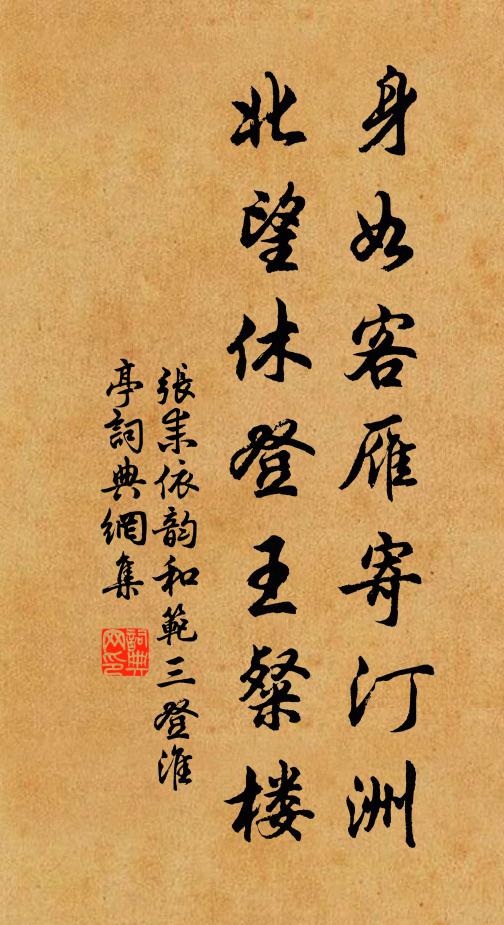 身如客雁寄汀洲
北望休登王粲楼
張耒依韵和範三登淮
亭詞典網集
詞典网印